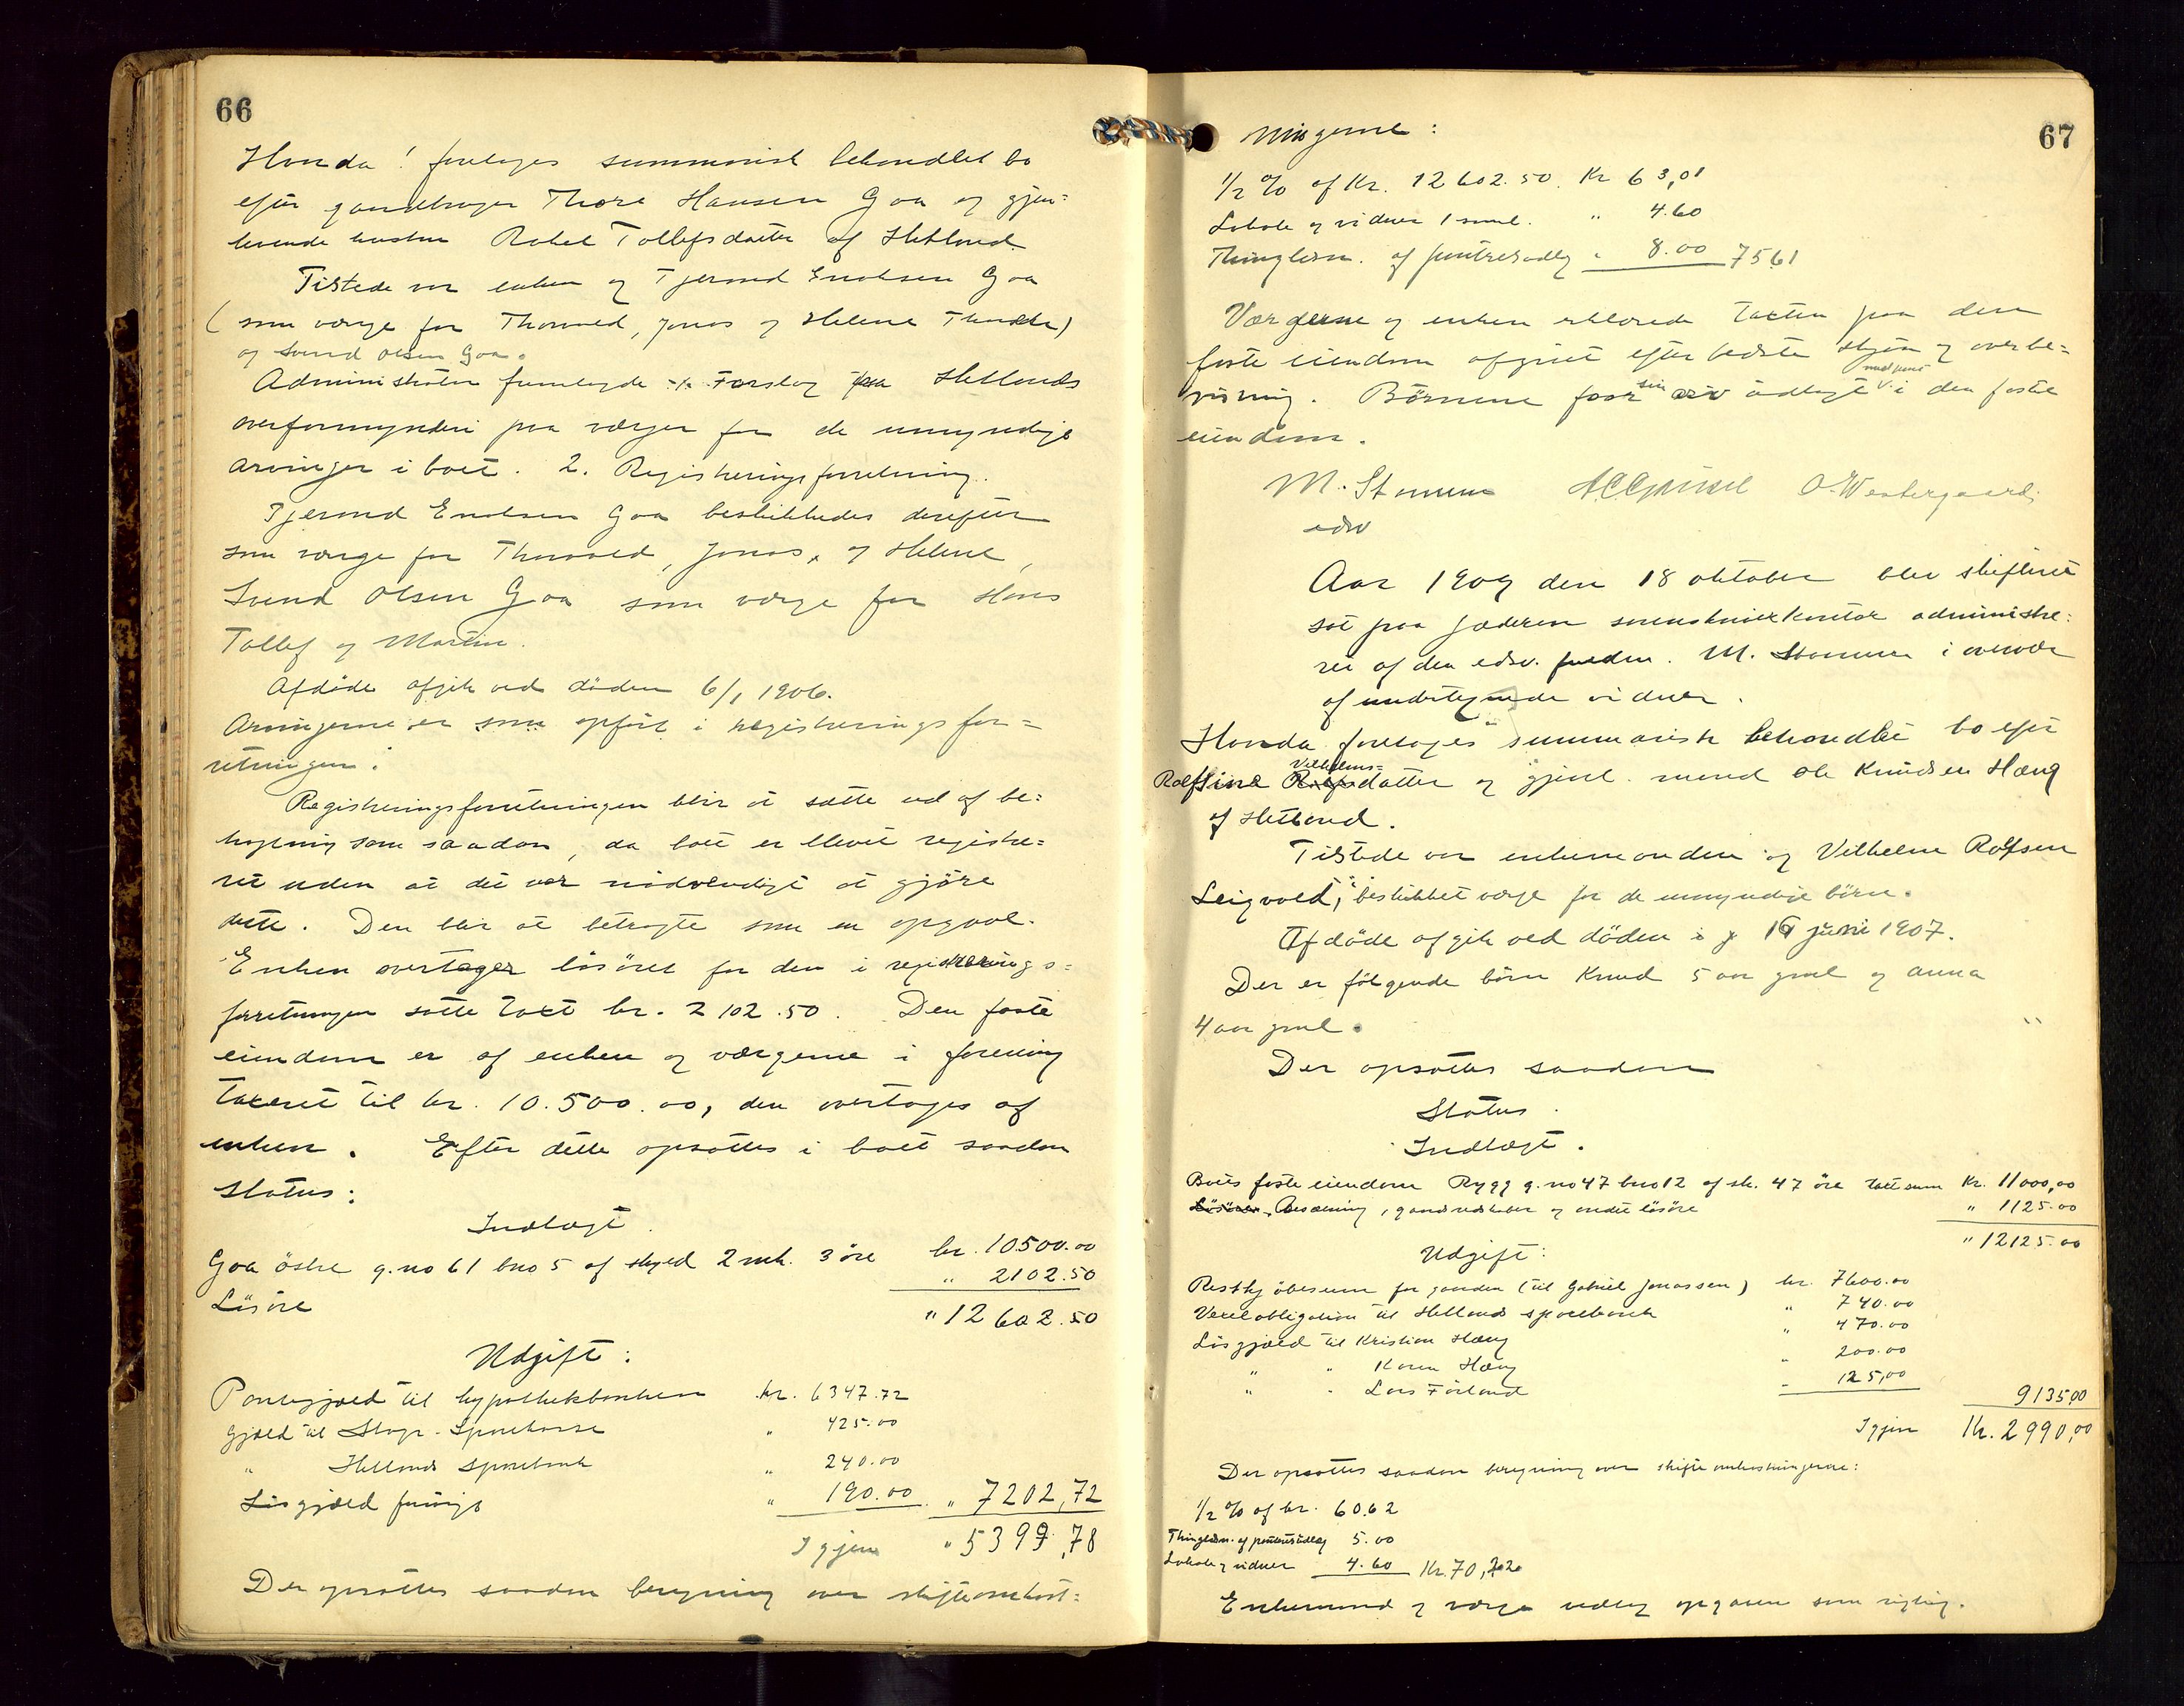 66
Honda! foretoges summarisk behandlet bo
efter gaardbruger Thore Hansen Goa og gjen=
levende hustru Rakel Tollefsdatter af Hetland.
Tilstede var enken og Tjerand Enoksen Goa
(som værge for Thorvald, Jonas og Helene Thordtr)
og Svend Olsen Goa.
Administrator fremlagde 1. Forslag fra Hetlands
overformynderi paa værger for de umyndige
arvinger i boet. 2. Registreringsforretning.
Tjerand Enoksen Goa beskikkedes derefter
som værge for Thorvald, Jonas, og Helene,
Svend Olsen Goa som værge for Hans
Tollef og Martin.
Afdøde afgik ved døden 6/1 1906.
Arvingerne er som opført i registreringsfor=
retningen.
Registreringsforretningen blir at sætte ud af be=
tragtning som saadan, da boet er blevet registre=
ret uden at det var nødvendigt at gjøre
dette. Den blir at betragte som en opgave.
Enken overtager løsøret for den i registrerings=
forretningen satte taxt kr. 2102.50. Den faste
eiendom er af enken og værgerne i forening
taxeret til kr. 10.500.00, den overtages af
enken. Efter dette opsattes i boet saadan
Status:
Indtægt.
Goa østre g.no 61 bno 5 af skyld 2 mk. 3 øre kr. 10500.00
Løsøre " 2102.50
" 12602.50
Udgift:
Pantegjæld til hypothekbanken kr. 6347.72
Gjæld til Stavr. Sparekasse " 425.00
" Hetlands Sparebank " 240.00
Løsgjæld forøvrigt " 190.00 " 7202,72
Igjen " 5399,78
Der opsattes saadan beregning over skifteomkost=
67
ningerne:
1/2 % af Kr. 12602.50. Kr 63,01
Lokale og vidner 1 saml. " 4.60
Thinglæsn. af panteudlæg " 8.00 75,61
Værgerne og enken erklærede taxten paa den
faste eiendom afgivet efter bedste skjøn og overbe=
visning. Børnene faar sin arv udlagt med pant i den faste
eiendom.
M. Stomum O. Westergaard
edsv
Aar 1907 den 18 oktober blev skifteret
sat paa Jæderens sorenskriverkontor administre=
ret af den edsv. fuldm. M. Stomum i overvær
af undertegnede vidner.
Honda foretoges summarisk behandlet bo efter
Rolfsine Vilhelms= datter og gjenl. mand Ole Knudsen Hæng
af Hetland.
Tilstede var enkemanden og Vilhelm Rolfsen
Leigvold, beskikket værge for de umyndige børn.
Afdøde afgik ved døden 16 juni 1907.
Der er følgende børn Knud 5 aar gml og Anna
4 aar gml.
Der opsattes saadan
Status.
Indtægt.
Boets faste eiendom Rygg g.no 47 bno 12 af sk. 47 øre taxtsum Kr. 11000,00
Løsøre Besætning, gaardredskaber og andet løsøre " 1125.00
" 12125.00
Udgift:
Restkjøbesum for gaarden (til Gabriel Jonassen) kr. 7600.00
Vexelobligation til Hetlands sparebank " 740.00
Løsgjæld til Kristian Hæng " 470.00
" " Karen Hæng " 200.00
" " Lars Førland " 125,00
9135,00
Igjen Kr. 2990,00
Der opsattes saadan beregning over skifteomkostningerne:
1/2 % af kr. 60.62
Thinglæsn. af panteudlæg 5.00
Lokale og vidner 4.60 Kr. 70,22
Enkemand og værge vedtog opgaven som rigtig.